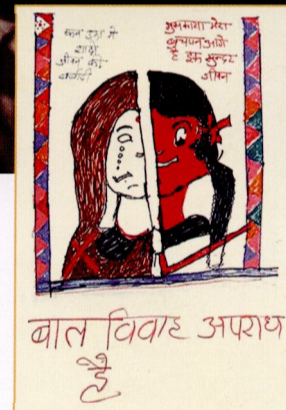 कम उम्र में
शादी
जीवन की
बर्बादी
मुस्काता मेरा
बचपन आगे
है इक सुन्दर
जीवन
बाल विवाह अपराध
है